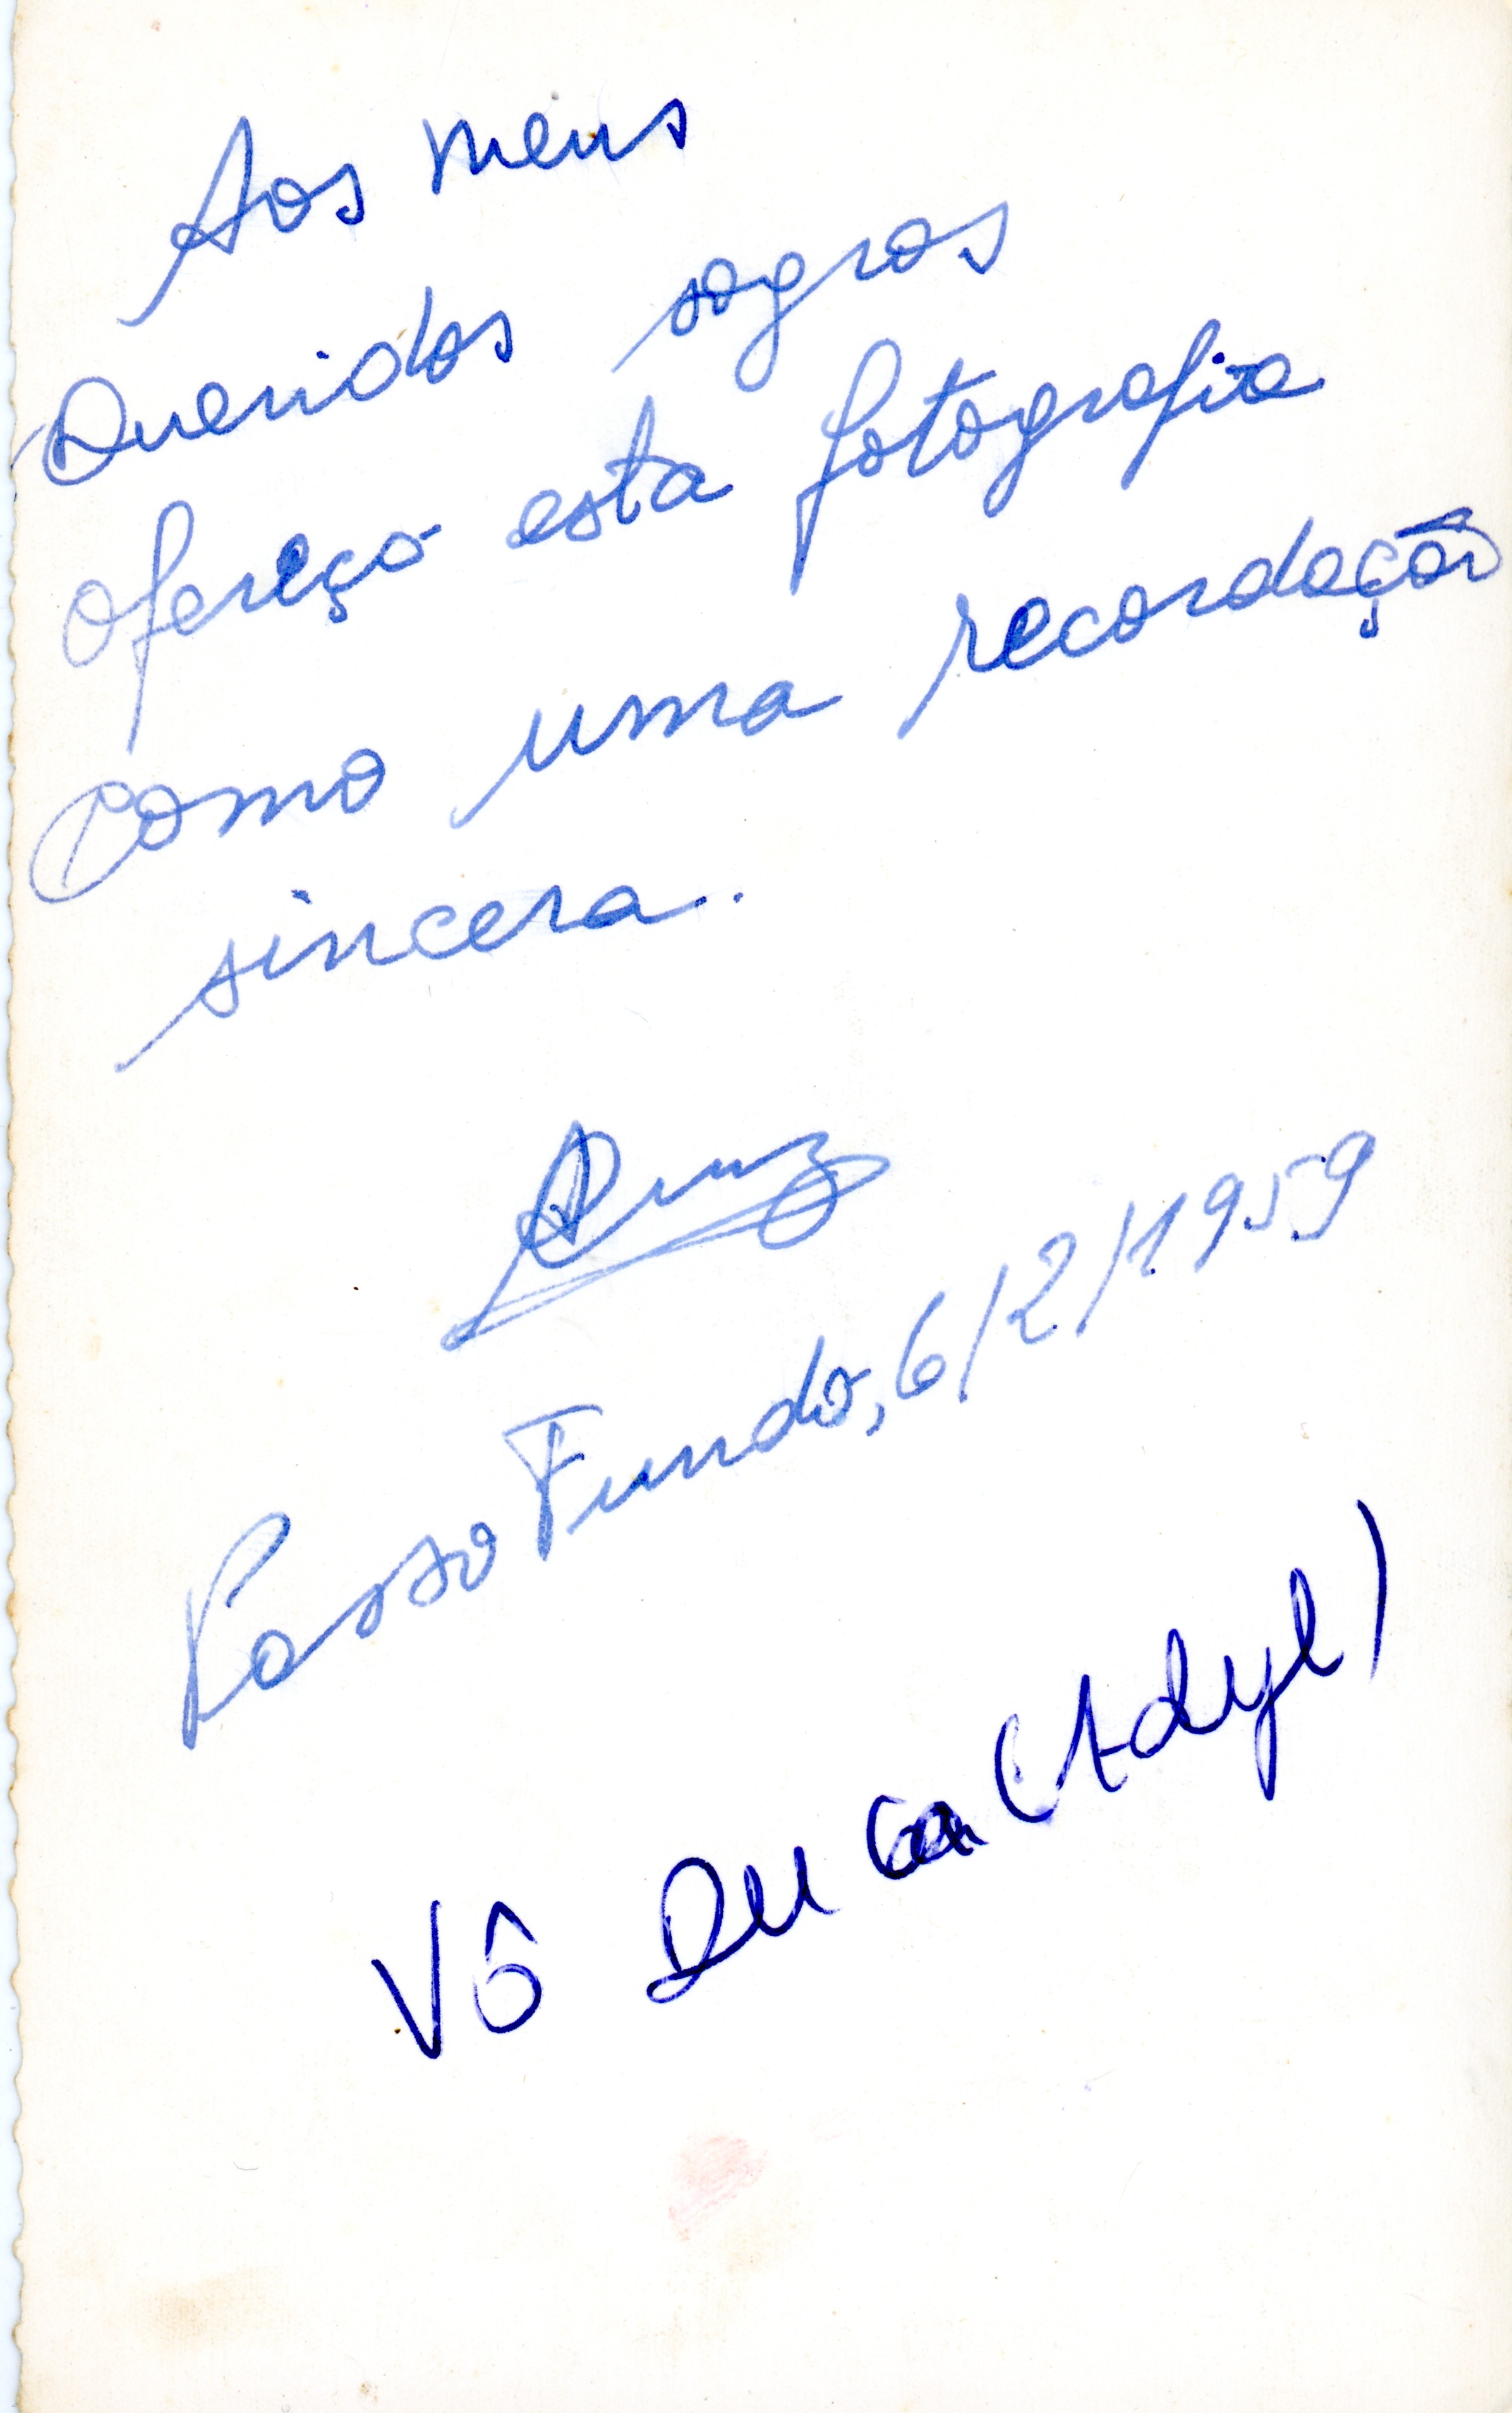 Aos meus
Queridos sogros
ofereço esta fotografia
como uma recordação
sincera.
Passo Fundo, 6/2/1959
Vô Duca (Adyl)